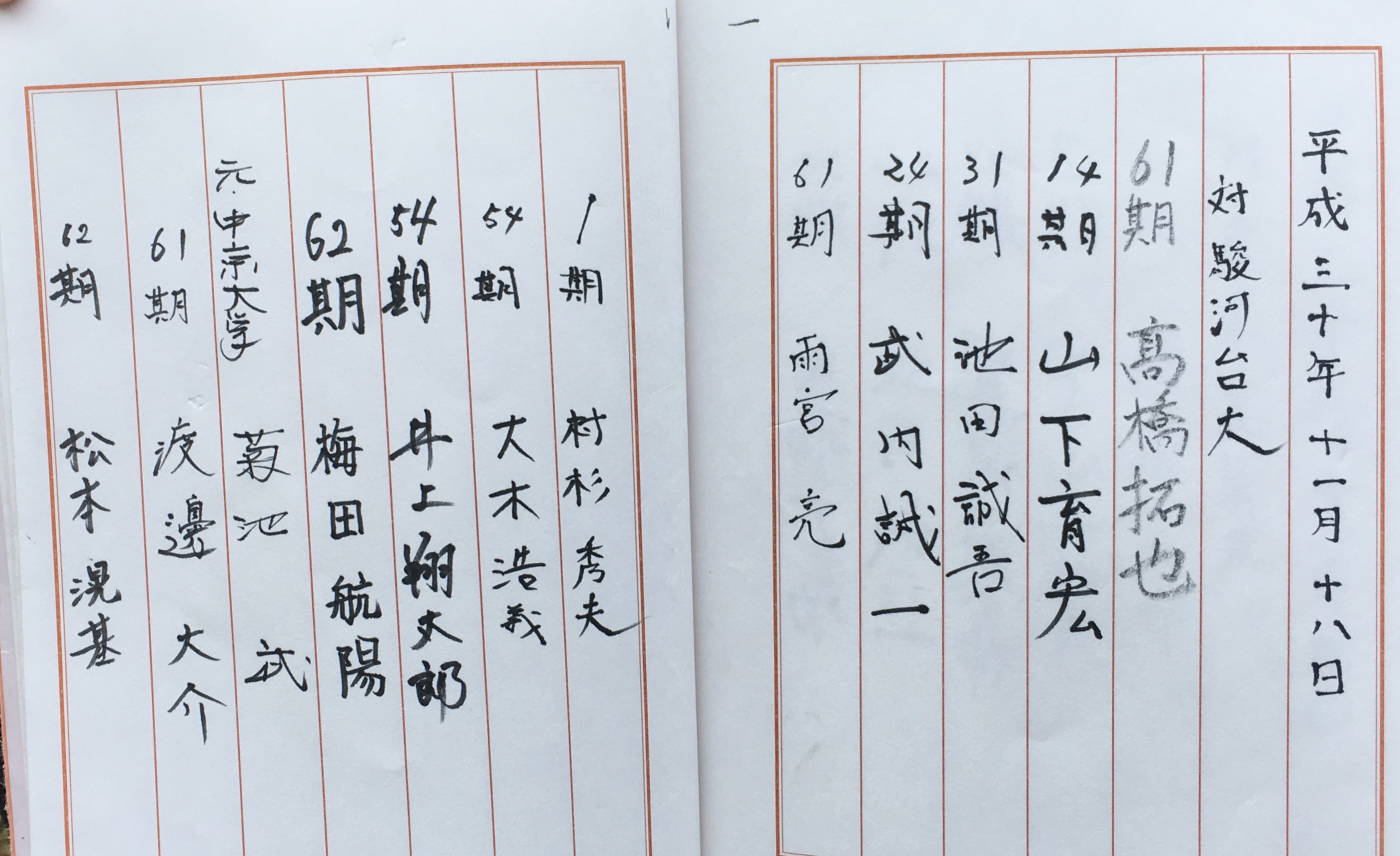 平成三十年十一月十八日
対駿河台大
61期 高橋拓也
14期 山下育宏
31期 池田誠吾
24期 武内誠一
61期 雨宮 亮
1期 村杉秀夫
54期 大木浩義
54期 井上翔太郎
62期 梅田航陽
元・中京大学 菊池 武
61期 渡邊大介
62期 松本滉基